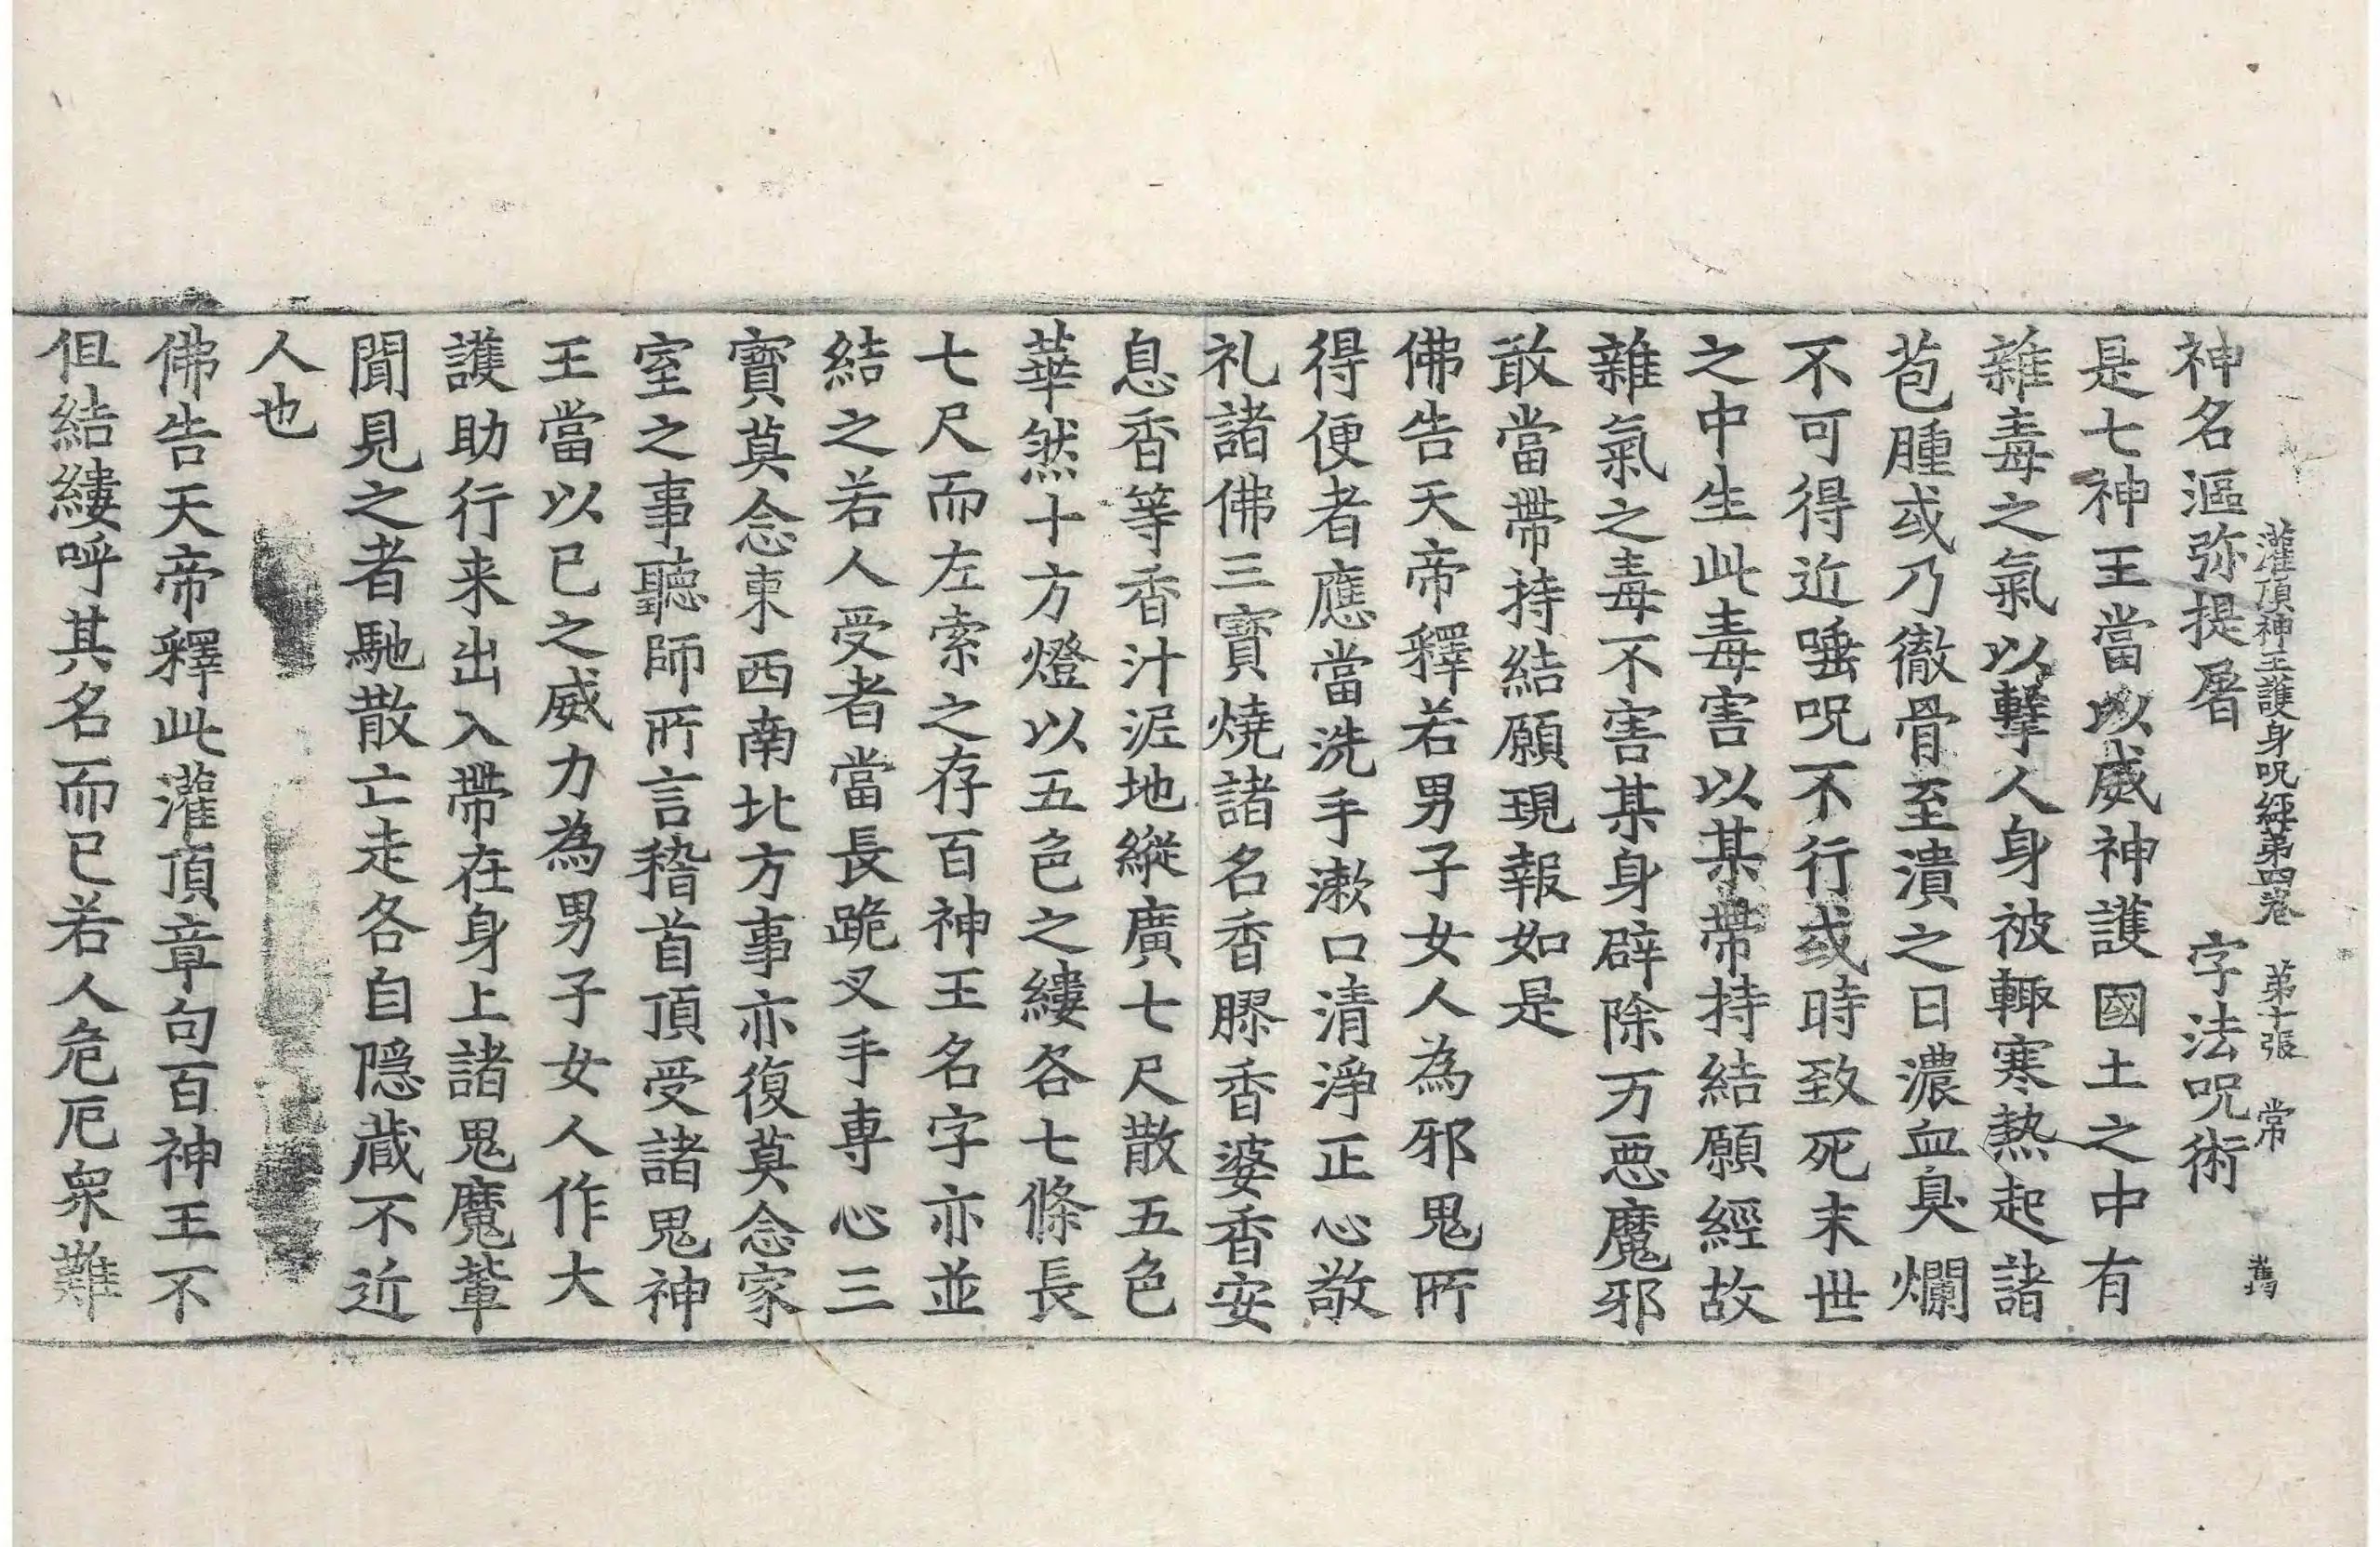 灌頂神王護身呪經第四卷　第十張　常
神名漚弥提屠　字法呪術
是七神王當以威神護國土之中有
雜毒之氣以擊人身被輙寒熱起諸
苞腫或乃徹骨至潰之日濃血臭爛
不可得近唾呪不行或時致死末世
之中生此毒害以某帶持結願經故
雜氣之毒不害某身辟除万惡魔邪
敢當帶持結願現報如是
佛告天帝釋若男子女人為邪鬼所
得便者應當洗手漱口清淨正心敬
礼諸佛三寶燒諸名香膠香婆香安
息香等香汁泥地縱廣七尺散五色
華然十方燈以五色之縷各七條長
七尺而左索之存百神王名字亦並
結之若人受者當長跪叉手專心三
寶莫念東西南北方事亦復莫念家
室之事聽師所言稽首頂受諸鬼神
王當以已之威力為男子女人作大
護助行来出入帶在身上諸鬼魔輩
聞見之者馳散亡走各自隱蔵不近
人也
佛告天帝釋此灌頂章句百神王不
但結縷呼其名而已若人危厄衆難